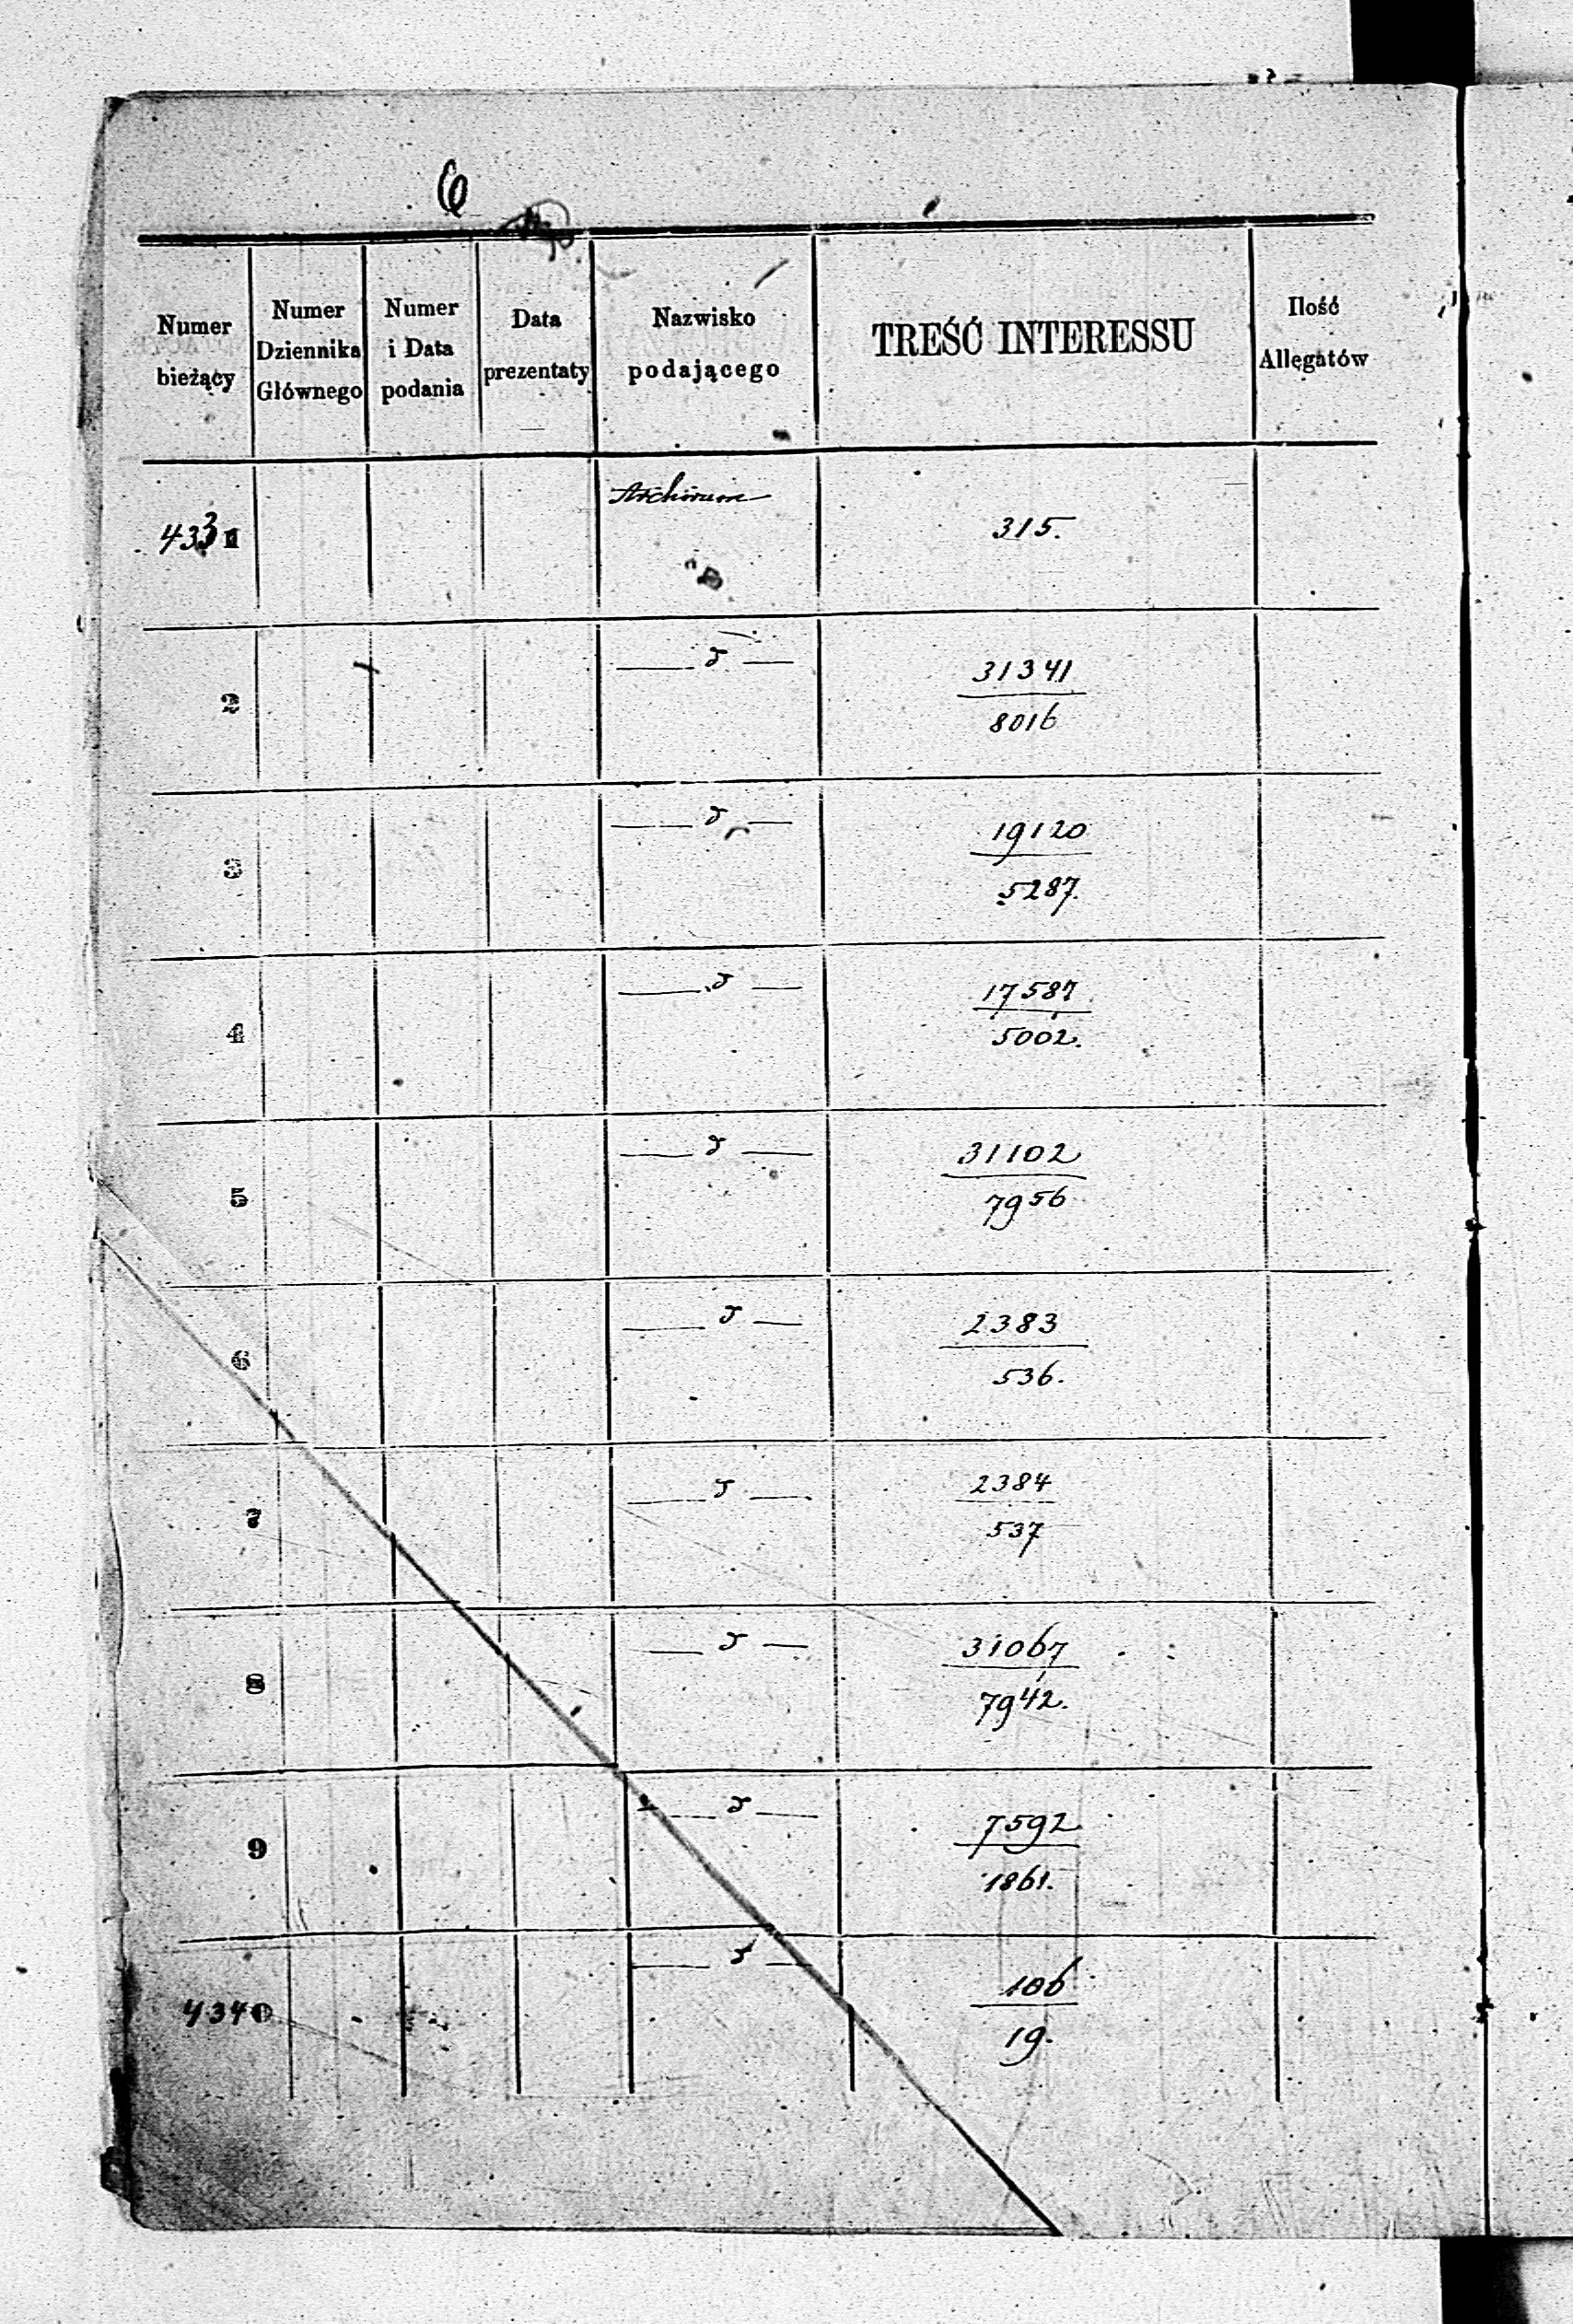 6
Numer bieżący
Numer Dziennika Głównego
Numer i Data podania
Data prezentaty
Nazwisko podającego
TREŚĆ INTERESSU
Ilość Allegatów
4331 Archiwum 315.
2 — d — 31341
8016
3 — d — 19120
5287.
4 — d — 17587
5002.
5 — d — 31102
7956
6 — d — 2383
536.
7 — d — 2384
537
8 — d — 31067
7942.
9 — d — 7592
1861.
4340 — d — 106
19.